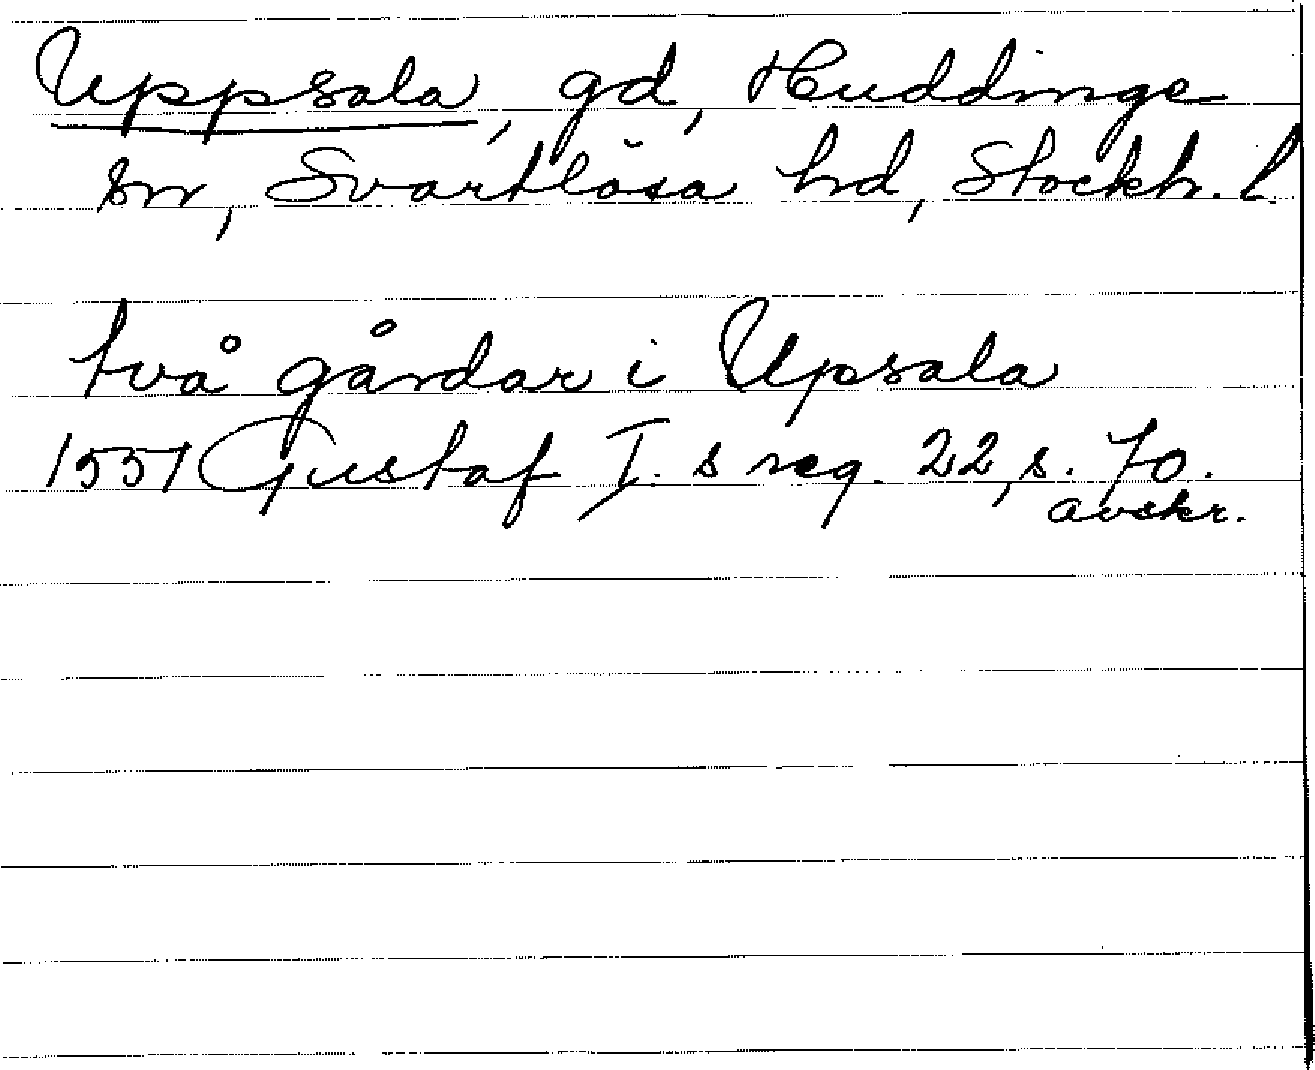 Uppsala, gd, Huddinge
sn, Svartlösa hd, Stockh. l.
två gårdar i Upsala
1551 Gustaf I. s reg. 22, s. 70.
avskr.